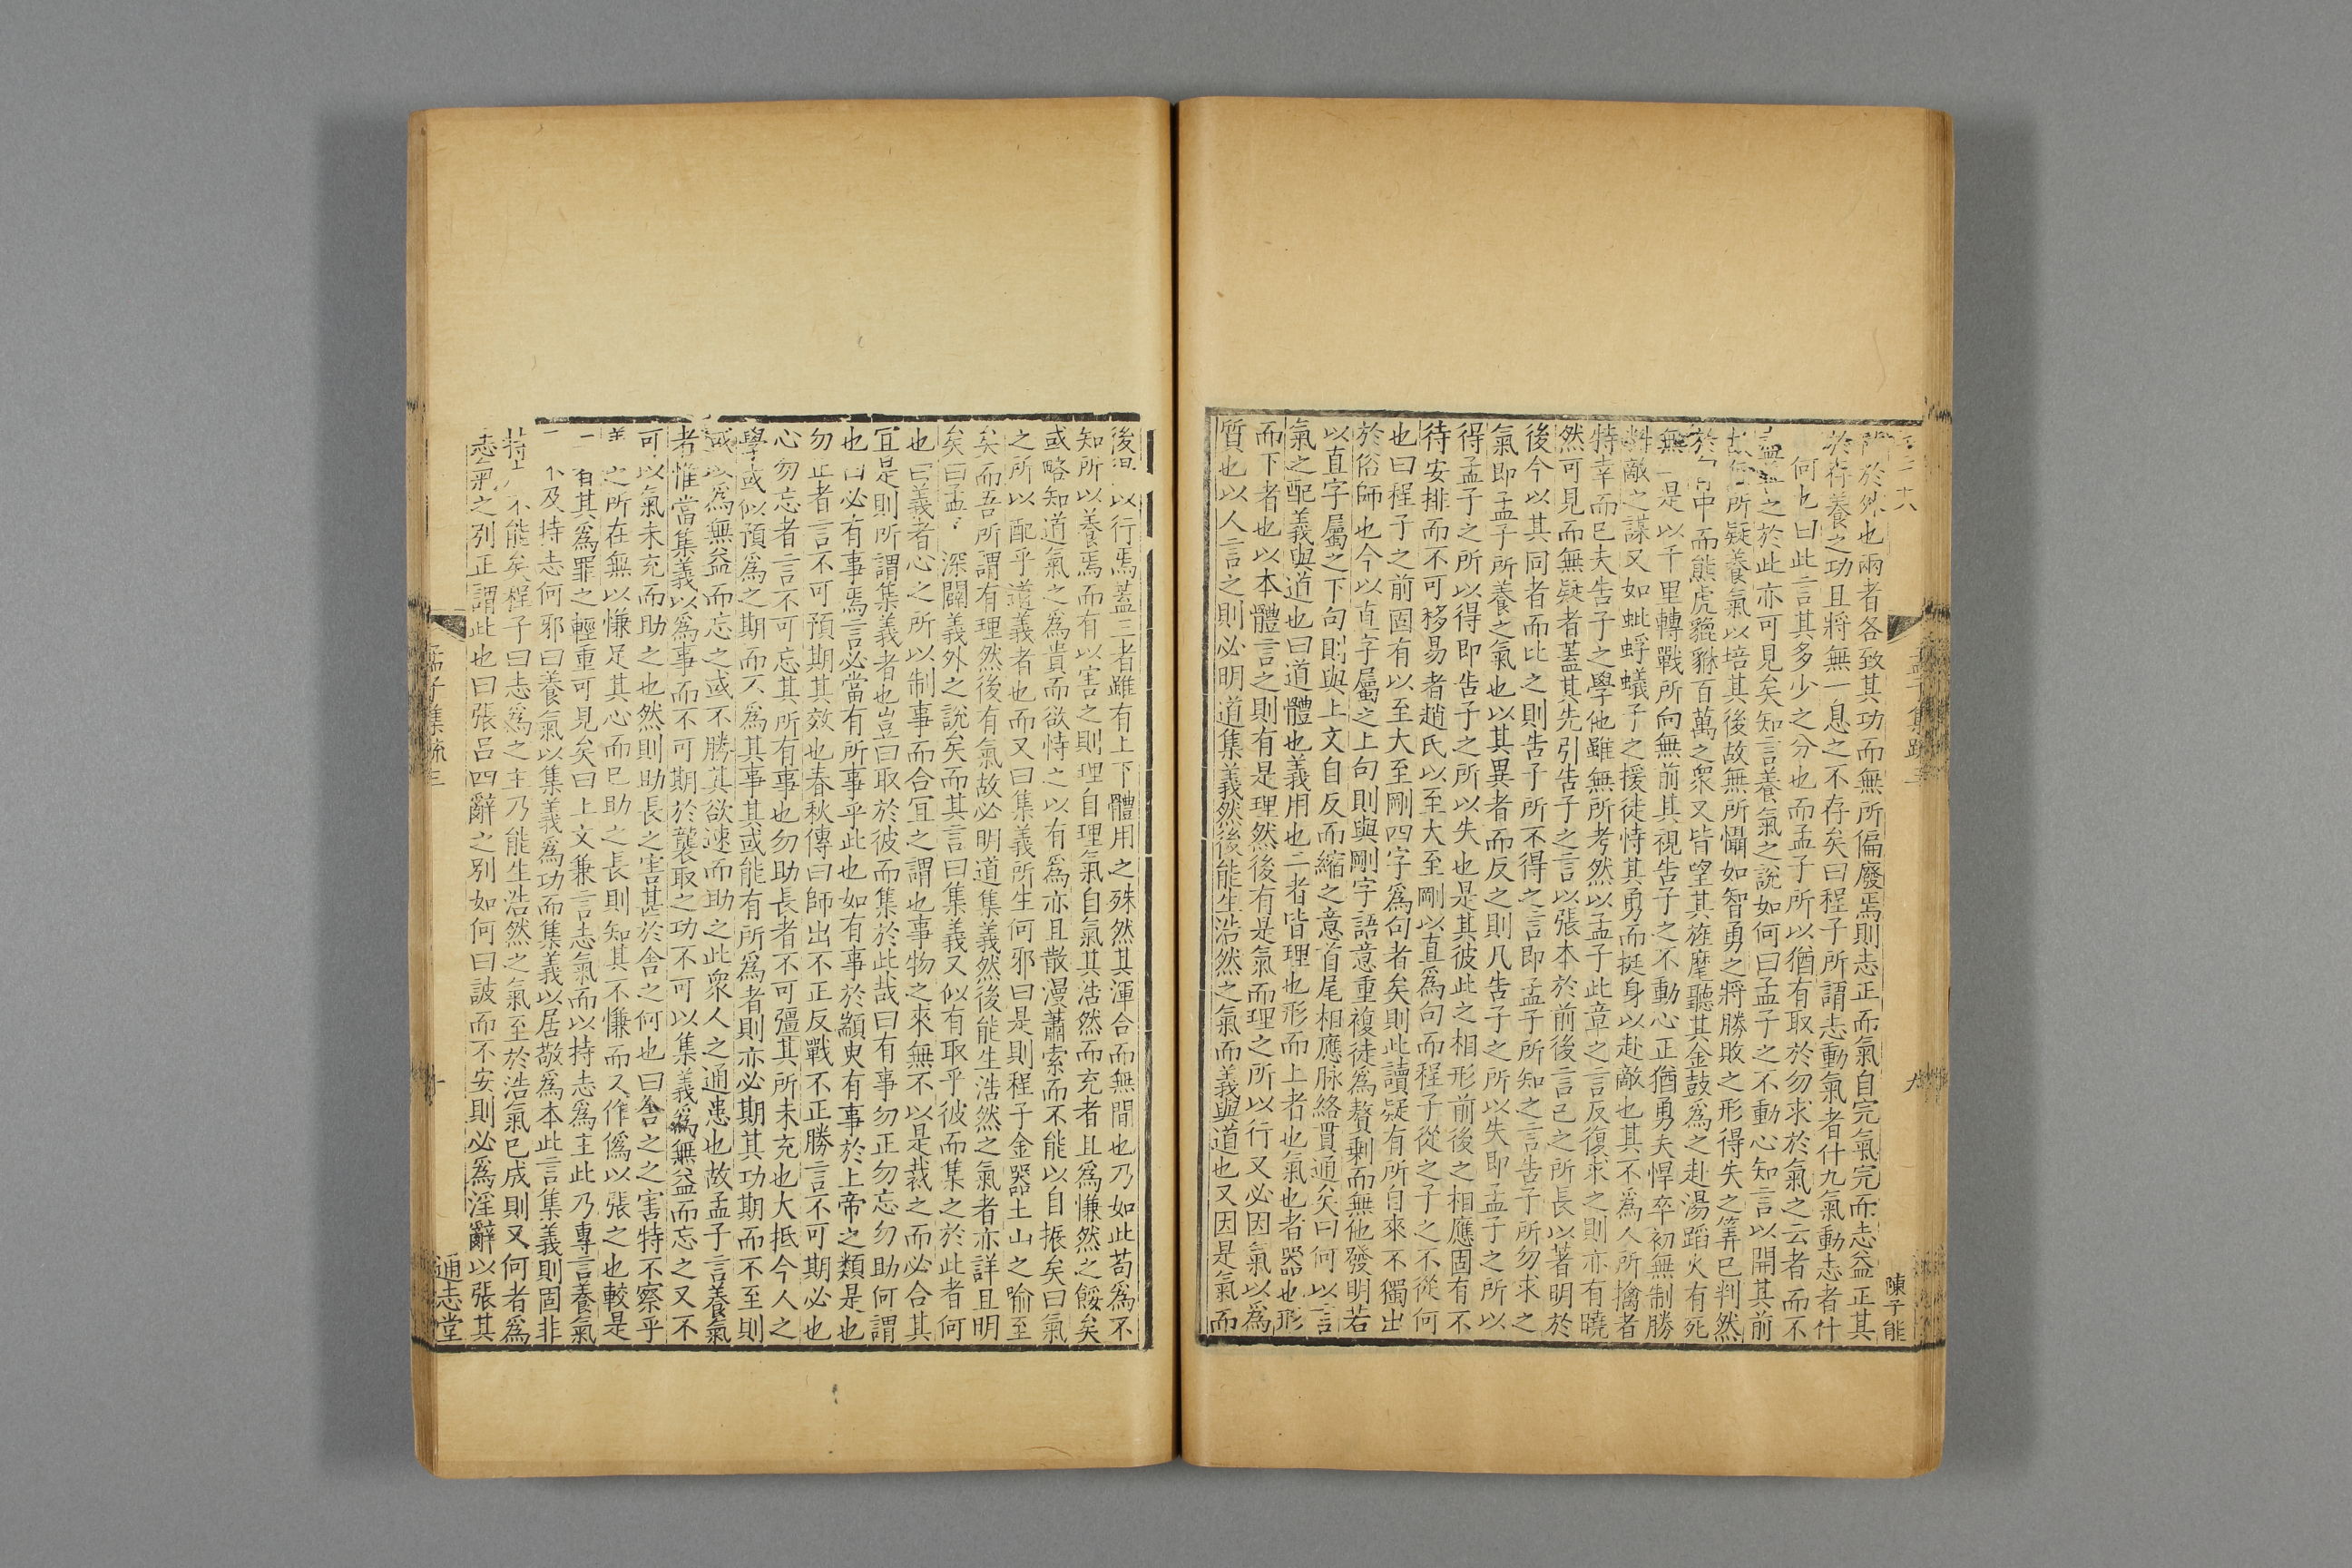 孟子集疏三
九
陳子能
於外也兩者各致其功而無所偏廢焉則志正而氣自完氣完而志益正其
於存養之功且將無一息之不存矣曰程子所謂志動氣者什九氣動志者什
何也曰此言其多少之分也而孟子所以猶有取於勿求於氣之云者而不
之於此亦可見矣知言養氣之說如何曰孟子之不動心知言以開其前
故無所疑養氣以培其後故無所懾如智勇之將勝敗之形得失之筭已判然
於胷中而熊虎貔貅百萬之衆又皆望其旌麾聽其金鼓爲之赴湯蹈火有死
無二是以千里轉戰所向無前其視告子之不動心正猶勇夫悍卒初無制勝
料敵之謀又如蚍蜉蟻子之援徒恃其勇而挺身以赴敵也其不爲人所擒者
特幸而已夫告子之學他雖無所考然以孟子此章之言反復求之則亦有曉
然可見而無疑者蓋其先引告子之言以張本於前後言已之所長以著明於
後今以其同者而比之則告子所不得之言即孟子所知之言告子所勿求之
氣即孟子所養之氣也以其異者而反之則凡告子之所以失即孟子之所以
得孟子之所以得即告子之所以失也是其彼此之相形前後之相應固有不
待安排而不可移易者趙氏以至大至剛以直爲句而程子從之子之不從何
也曰程子之前固有以至大至剛四字爲句者矣則此讀疑有所自來不獨出
於俗師也今以直字屬之上句則與剛字語意重複徒爲贅剩而無他發明若
以直字屬之下句則與上文自反而縮之意首尾相應脉絡貫通矣曰何以言
氣之配義與道也曰道體也義用也二者皆理也形而上者也氣也者器也形
而下者也以本體言之則有是理然後有是氣而理之所以行又必因氣以爲
質也以人言之則必明道集義然後能生浩然之氣而義與道也又因是氣而
後得以行焉蓋三者雖有上下體用之殊然其渾合而無間也乃如此苟爲不
知所以養焉而有以害之則理自理氣自氣其浩然而充者且爲慊然之餒矣
或略知道氣之爲貴而欲恃之以有爲亦且散漫蕭索而不能以自振矣曰氣
之所以配乎道義者也而又曰集義所生何邪曰是則程子金器土山之喻至
矣而吾所謂有理然後有氣故必明道集義然後能生浩然之氣者亦詳且明
矣曰孟子深闢義外之說矣而其言曰集義又似有取乎彼而集之於此者何
也曰義者心之所以制事而合宜之謂也事物之來無不以是裁之而必合其
宜是則所謂集義者也豈曰取於彼而集於此哉曰有事勿正勿忘勿助何謂
也曰必有事焉言必當有所事乎此也如有事於顓臾有事於上帝之類是也
勿正者言不可預期其效也春秋傳曰師出不正反戰不正勝言不可期必也
心勿忘者言不可忘其所有事也勿助長者不可彊其所未充也大抵今人之
學或似預爲之期而不爲其事其或能有所爲者則亦必期其功期而不至則
或以爲無益而忘之或不勝其欲速而助之此衆人之通患也故孟子言養氣
者惟當集義以爲事而不可期於襲取之功不可以集義爲無益而忘之又不
可以氣未充而助之也然則助長之害甚於舍之何也曰舍之之害特不察乎
義之所在無以慊足其心而已助之長則知其不慊而又作僞以張之也較是
二者其爲罪之輕重可見矣曰上文兼言志氣而以持志爲主此乃專言養氣
不及持志何邪曰養氣以集義爲功而集義以居敬爲本此言集義則固非
持志不能矣程子曰志爲之主乃能生浩然之氣至於浩氣已成則又何者爲
志氣之别正謂此也曰張呂四辭之别如何曰詖而不安則必爲淫辭以張其
孟子集疏三
十
通志堂